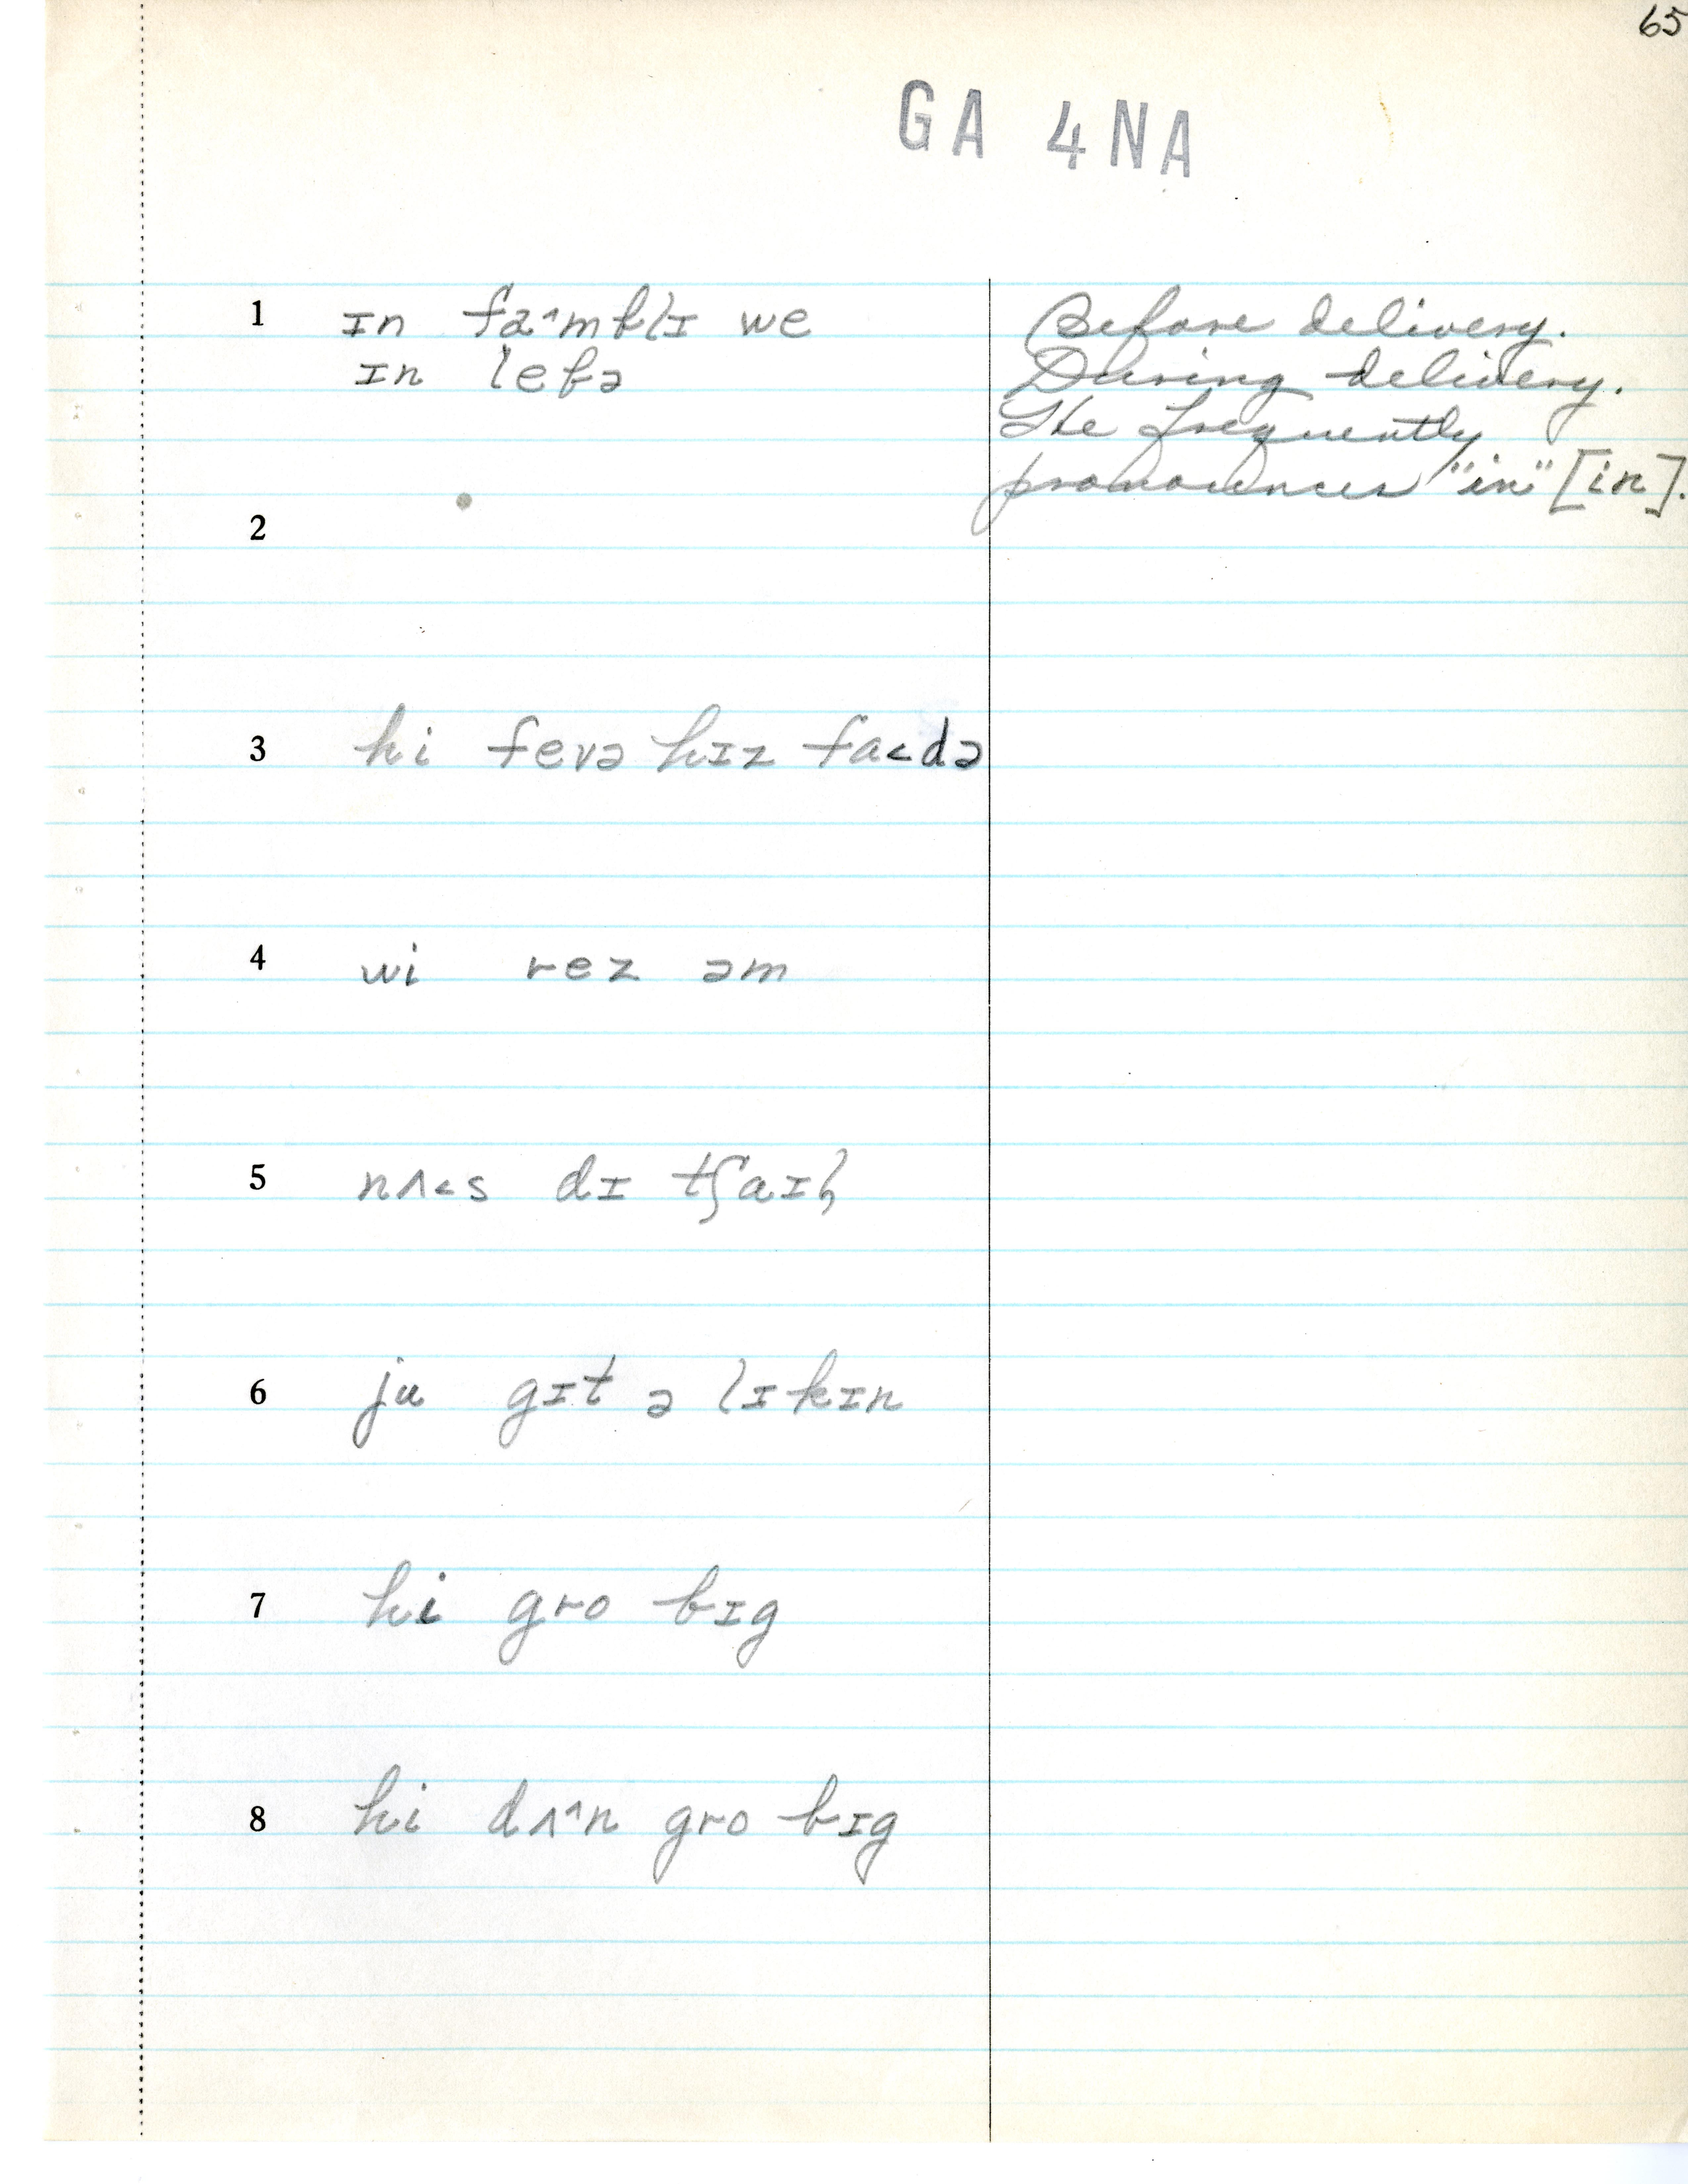 65
GA 4NA
1 ɪn fa^mblɪ we
ɪn lebə
Before delivery.
During delivery.
He frequently
pronounces "in" [in].
2
3 hi fevə hɪz fa<də
4 wi rez əm
5 nʌ<s dɪ tʃaɪl
6 ju gɪt ə lɪkɪn
7 hi gro bɪg
8 hi dʌ^n gro bɪg